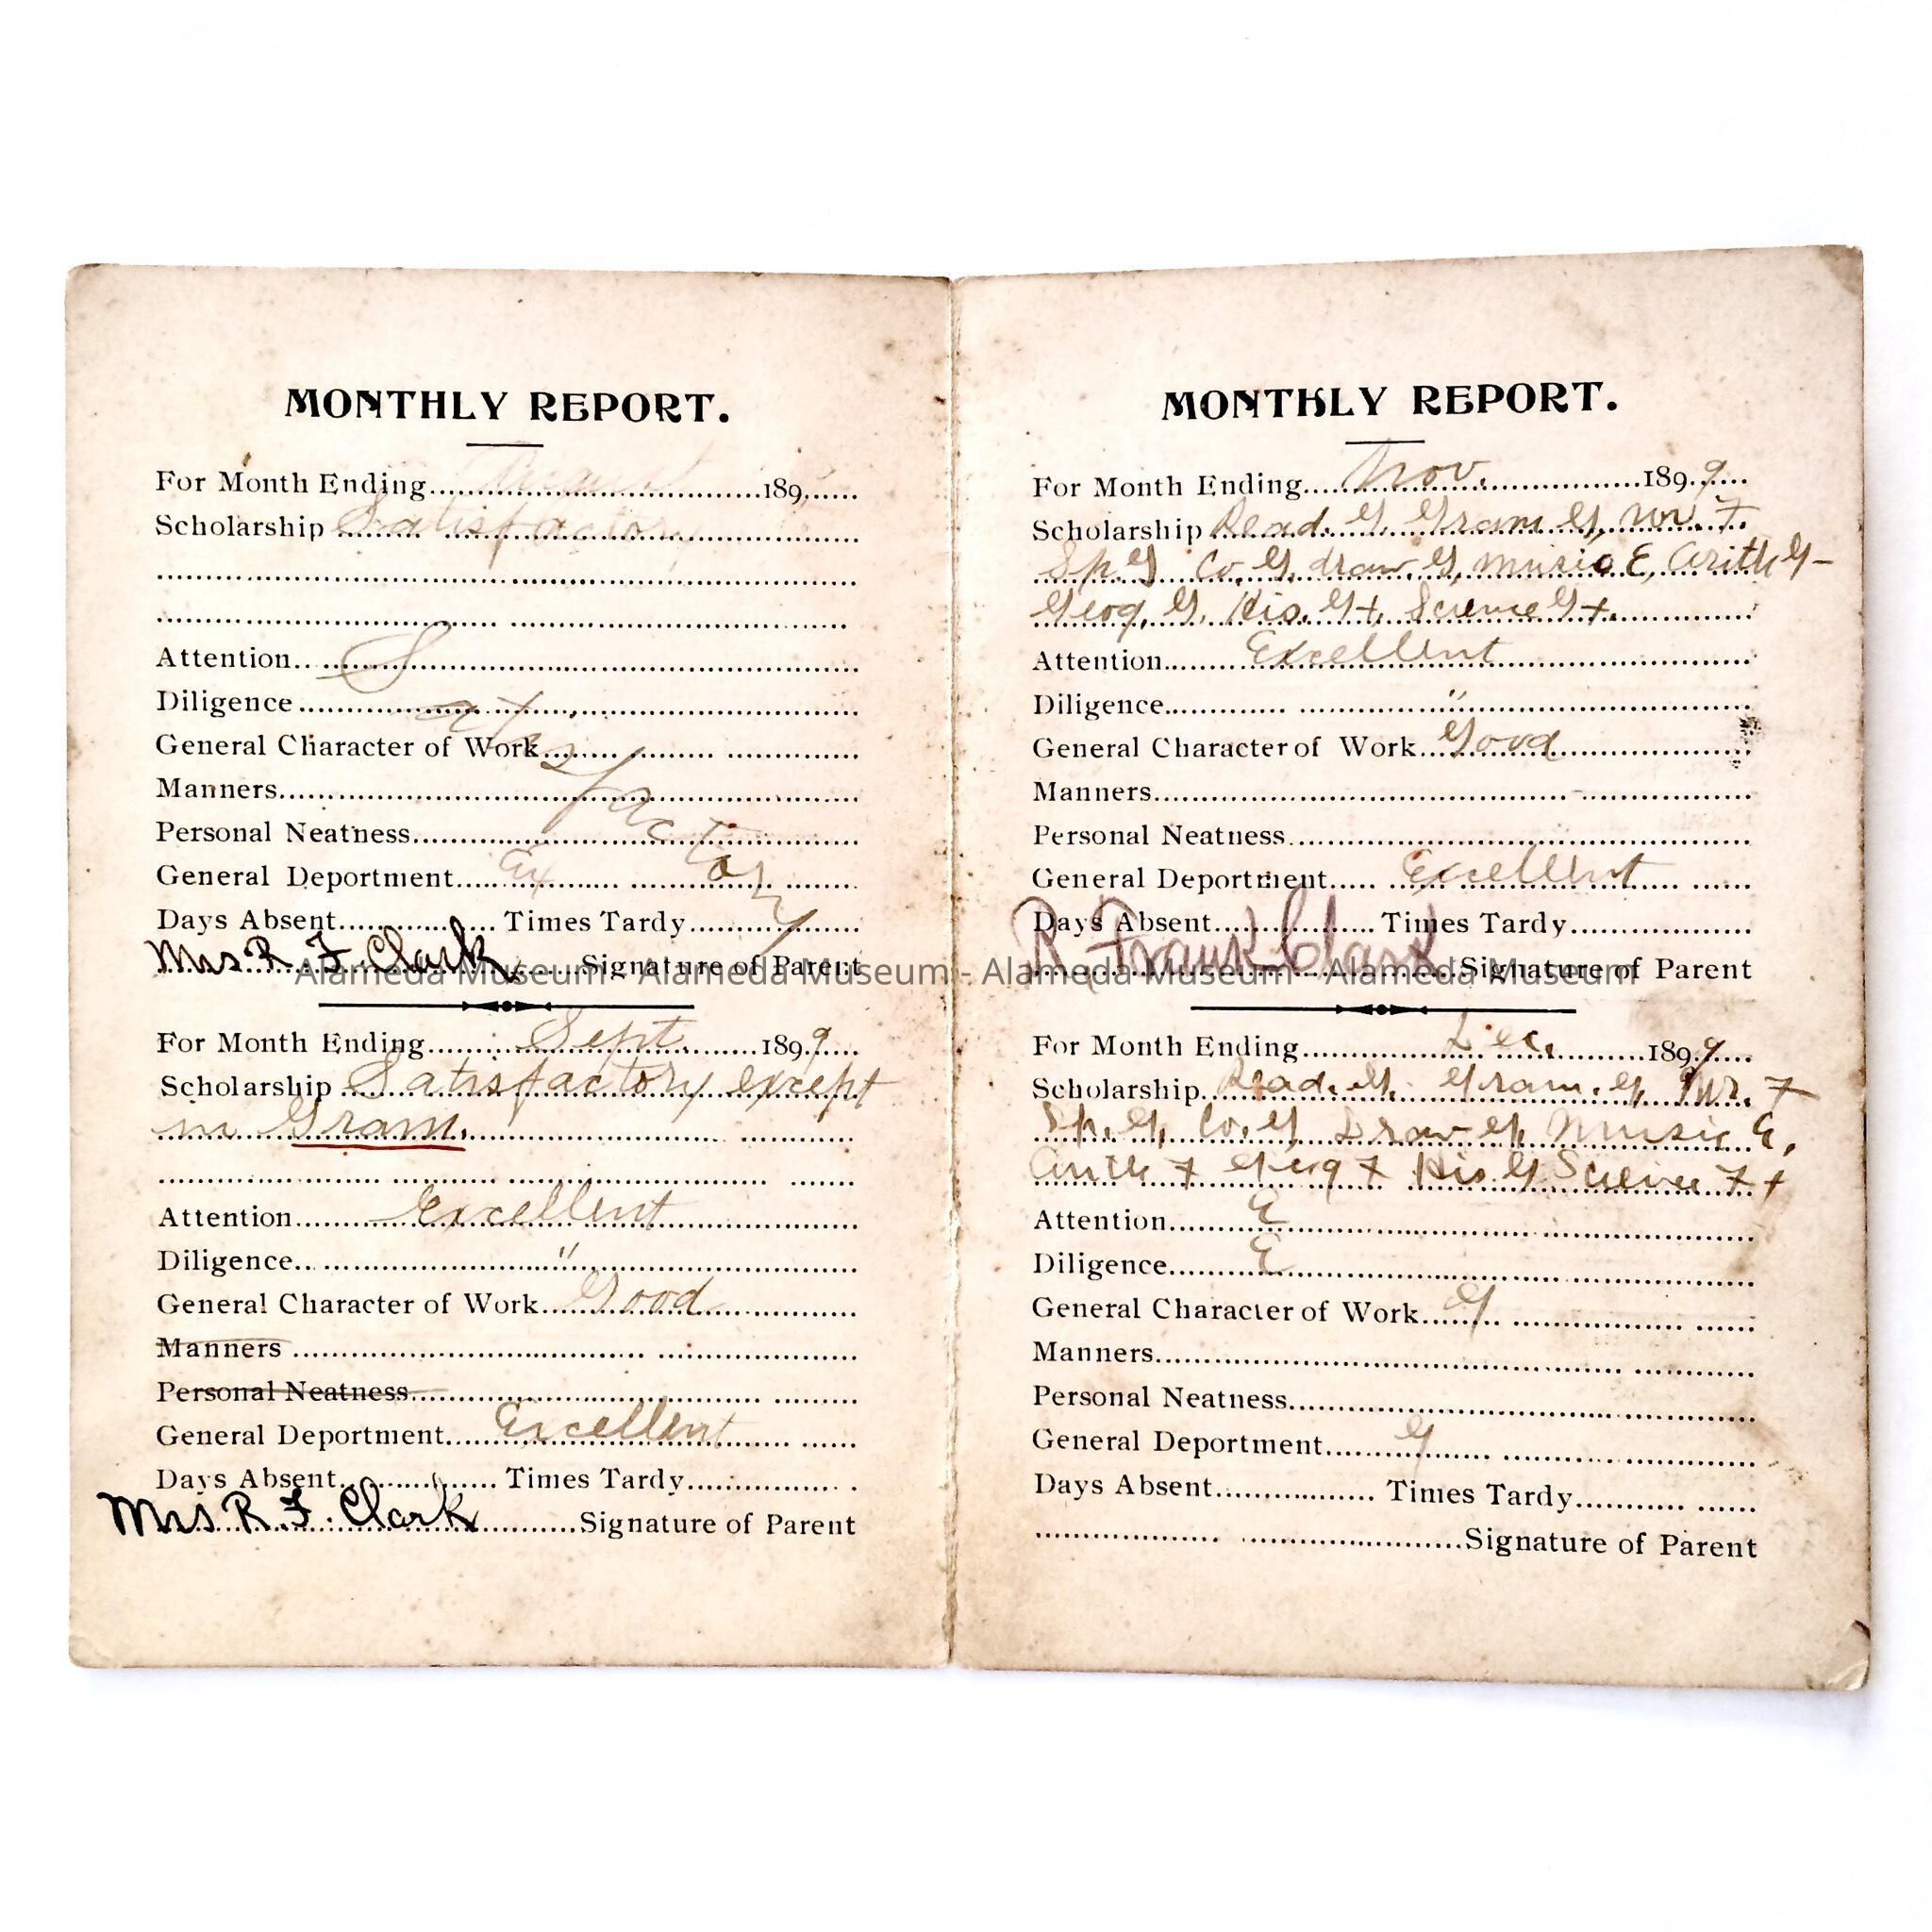 MONTHLY REPORT.
For Month Ending 189
Scholarship Satisfactory
Attention
Diligence
General Character of Work
Manners
Personal Neatness
Satisfactory
General Deportment Ex
Days Absent Times Tardy
Mrs R. F. Clark Signature of Parent
For Month Ending Sept. 1899
Scholarship Satisfactory except
in Gram.
Attention Excellent
Diligence "
General Character of Work Good
Manners
Personal Neatness
General Deportment Excellent
Days Absent Times Tardy
Mrs R. F. Clark Signature of Parent
MONTHLY REPORT.
For Month Ending Nov. 1899
Scholarship Read. G. Gram G, Wr. F.
Sp. G Co. G, draw. G, music E, Arith G-
Geog. G. His. G+. Science G+.
Attention Excellent
Diligence "
General Character of Work Good
Manners
Personal Neatness
General Deportment Excellent
Days Absent Times Tardy
R. Frank Clark Signature of Parent
For Month Ending Dec. 1899
Scholarship Read. G. Gram. G, Wr. F
Sp. G, Co. G Draw G, Music E.
Arith F Geog F His. G Science F+
Attention E
Diligence E
General Character of Work G
Manners
Personal Neatness
General Deportment G
Days Absent Times Tardy
Signature of Parent
Alameda Museum - Alameda Museum - Alameda Museum - Alameda Museum